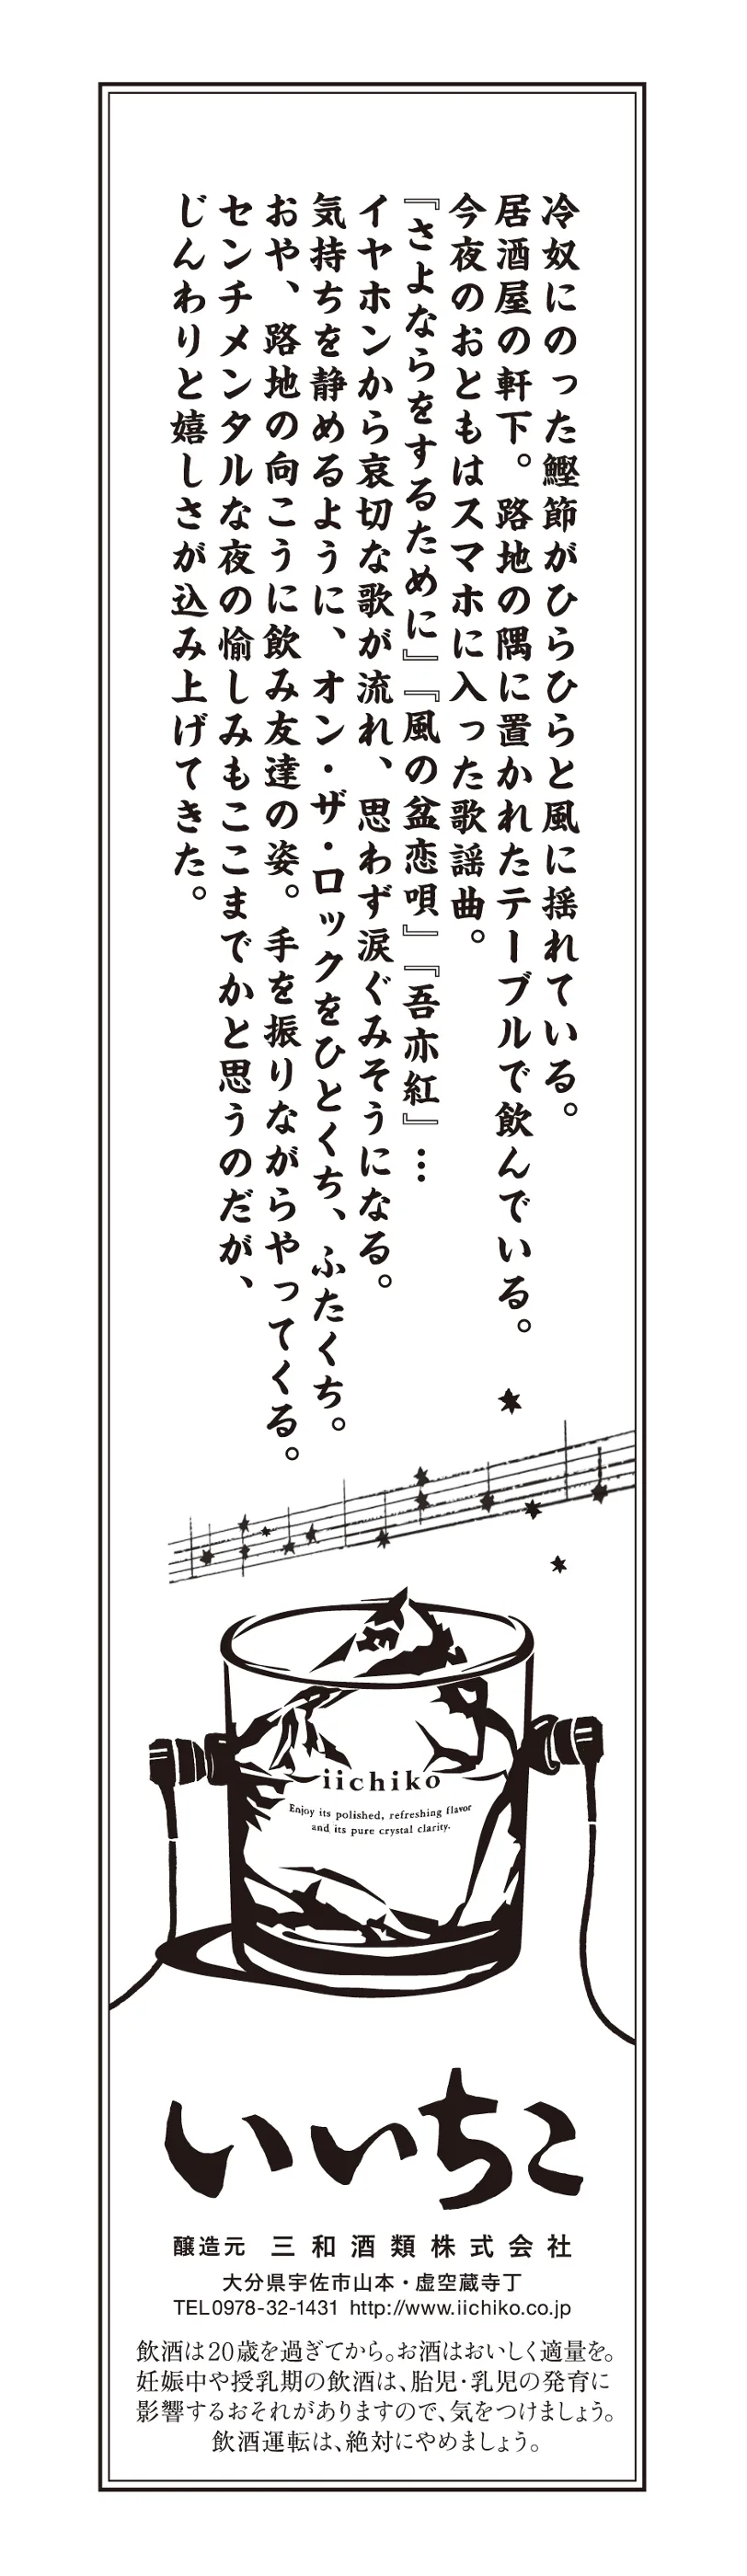 冷奴にのった鰹節がひらひらと風に揺れている。
居酒屋の軒下。路地の隅に置かれたテーブルで飲んでいる。
今夜のおともはスマホに入った歌謡曲。
『さよならをするために』『風の盆恋唄』『吾亦紅』…
イヤホンから哀切な歌が流れ、思わず涙ぐみそうになる。
気持ちを静めるように、オン・ザ・ロックをひとくち、ふたくち。
おや、路地の向こうに飲み友達の姿。手を振りながらやってくる。
センチメンタルな夜の愉しみもここまでかと思うのだが、
じんわりと嬉しさが込み上げてきた。
iichiko
Enjoy its polished, refreshing flavor
and its pure crystal clarity.
いいちこ
醸造元 三和酒類株式会社
大分県宇佐市山本・虚空蔵寺丁
TEL0978-32-1431 http://www.iichiko.co.jp
飲酒は20歳を過ぎてから。お酒はおいしく適量を。
妊娠中や授乳期の飲酒は、胎児・乳児の発育に
影響するおそれがありますので、気をつけましょう。
飲酒運転は、絶対にやめましょう。